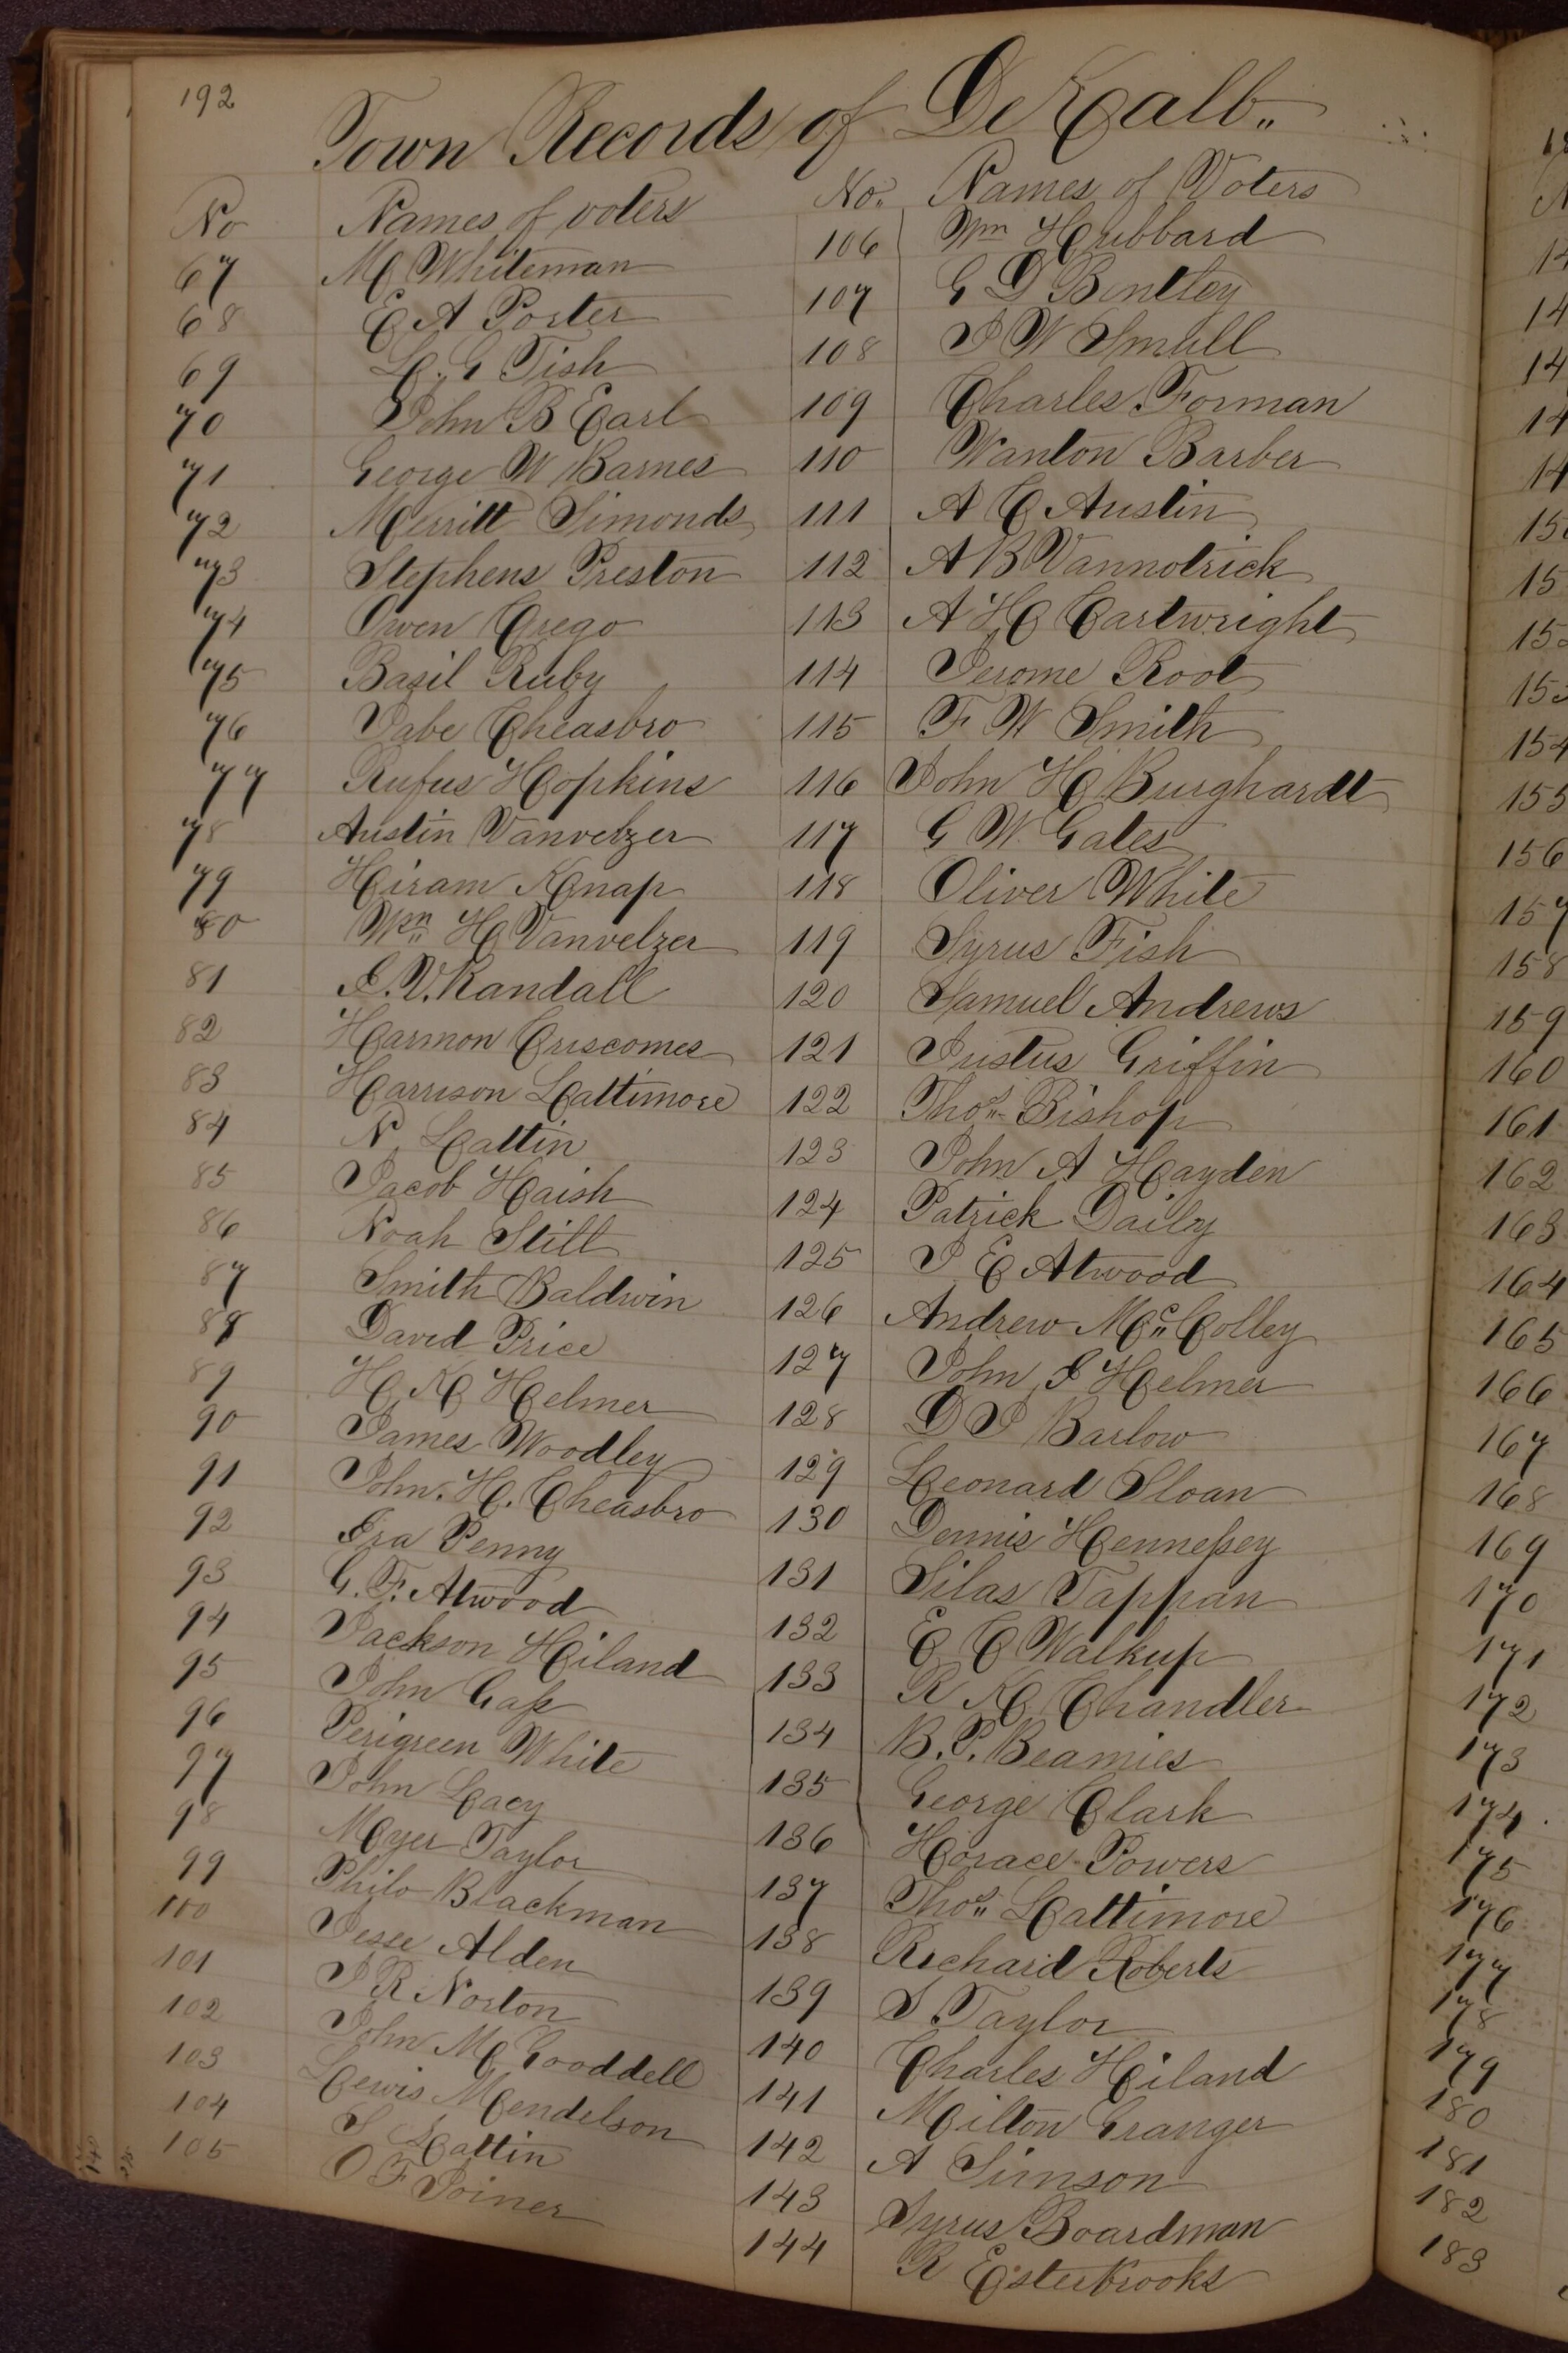 192
Town Records of DeKalb"
No Names of voters
67 M Whiteman
68 E A Porter
69 L. G Fish
70 John B Earl
71 George W Barnes
72 Merritt Simonds
73 Stephens Preston
74 Owen Crego
75 Basil Ruby
76 Jabe Cheasbro
77 Rufus Hopkins
78 Austin Vanvelzer
79 Hiram Knap
80 Wm H Vanvelzer
81 I. V. Randall
82 Harmon Criscomes
83 Harrison Lattimore
84 N Lattin
85 Jacob Haish
86 Noah Still
87 Smith Baldwin
88 David Price
89 H K Helmer
90 James Woodley
91 John. H. Cheasbro
92 Ira Penny
93 G. F. Atwood
94 Jackson Hiland
95 John Gass
96 Perigreen White
97 John Lacy
98 Myer Taylor
99 Philo Blackman
100 Jesse Alden
101 J R Norton
102 John M Gooddell
103 Lewis Mendelson
104 S Lattin
105 O F Joiner
No. Names of Voters
106 Wm Hubbard
107 G D Bentley
108 J W Small
109 Charles Forman
110 Wanton Barber
111 A C Austin
112 A B Vannotrick
113 A H Cartwright
114 Jerome Root
115 F W Smith
116 John H Burghardt
117 G W Gates
118 Oliver White
119 Syrus Fish
120 Samuel Andrews
121 Justus Griffin
122 Thos Bishop
123 John A Hayden
124 Patrick Daily
125 J E Atwood
126 Andrew Mc Colley
127 John I Helmer
128 D J Barlow
129 Leonard Sloan
130 Dennis Hennessey
131 Silas Tappan
132 E C Walkup
133 R K Chandler
134 B. P. Beamies
135 George Clark
136 Horace Powers
137 Thos Lattimore
138 Richard Roberts
139 S Taylor
140 Charles Hiland
141 Milton Granger
142 A Simson
143 Syrus Boardman
144 R Esterbrooks
156
157
158
159
160
161
162
163
164
165
166
167
168
169
170
171
172
173
174
175
176
177
178
179
180
181
182
183